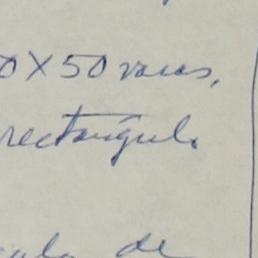 0X50 varas,
rectángulo
de